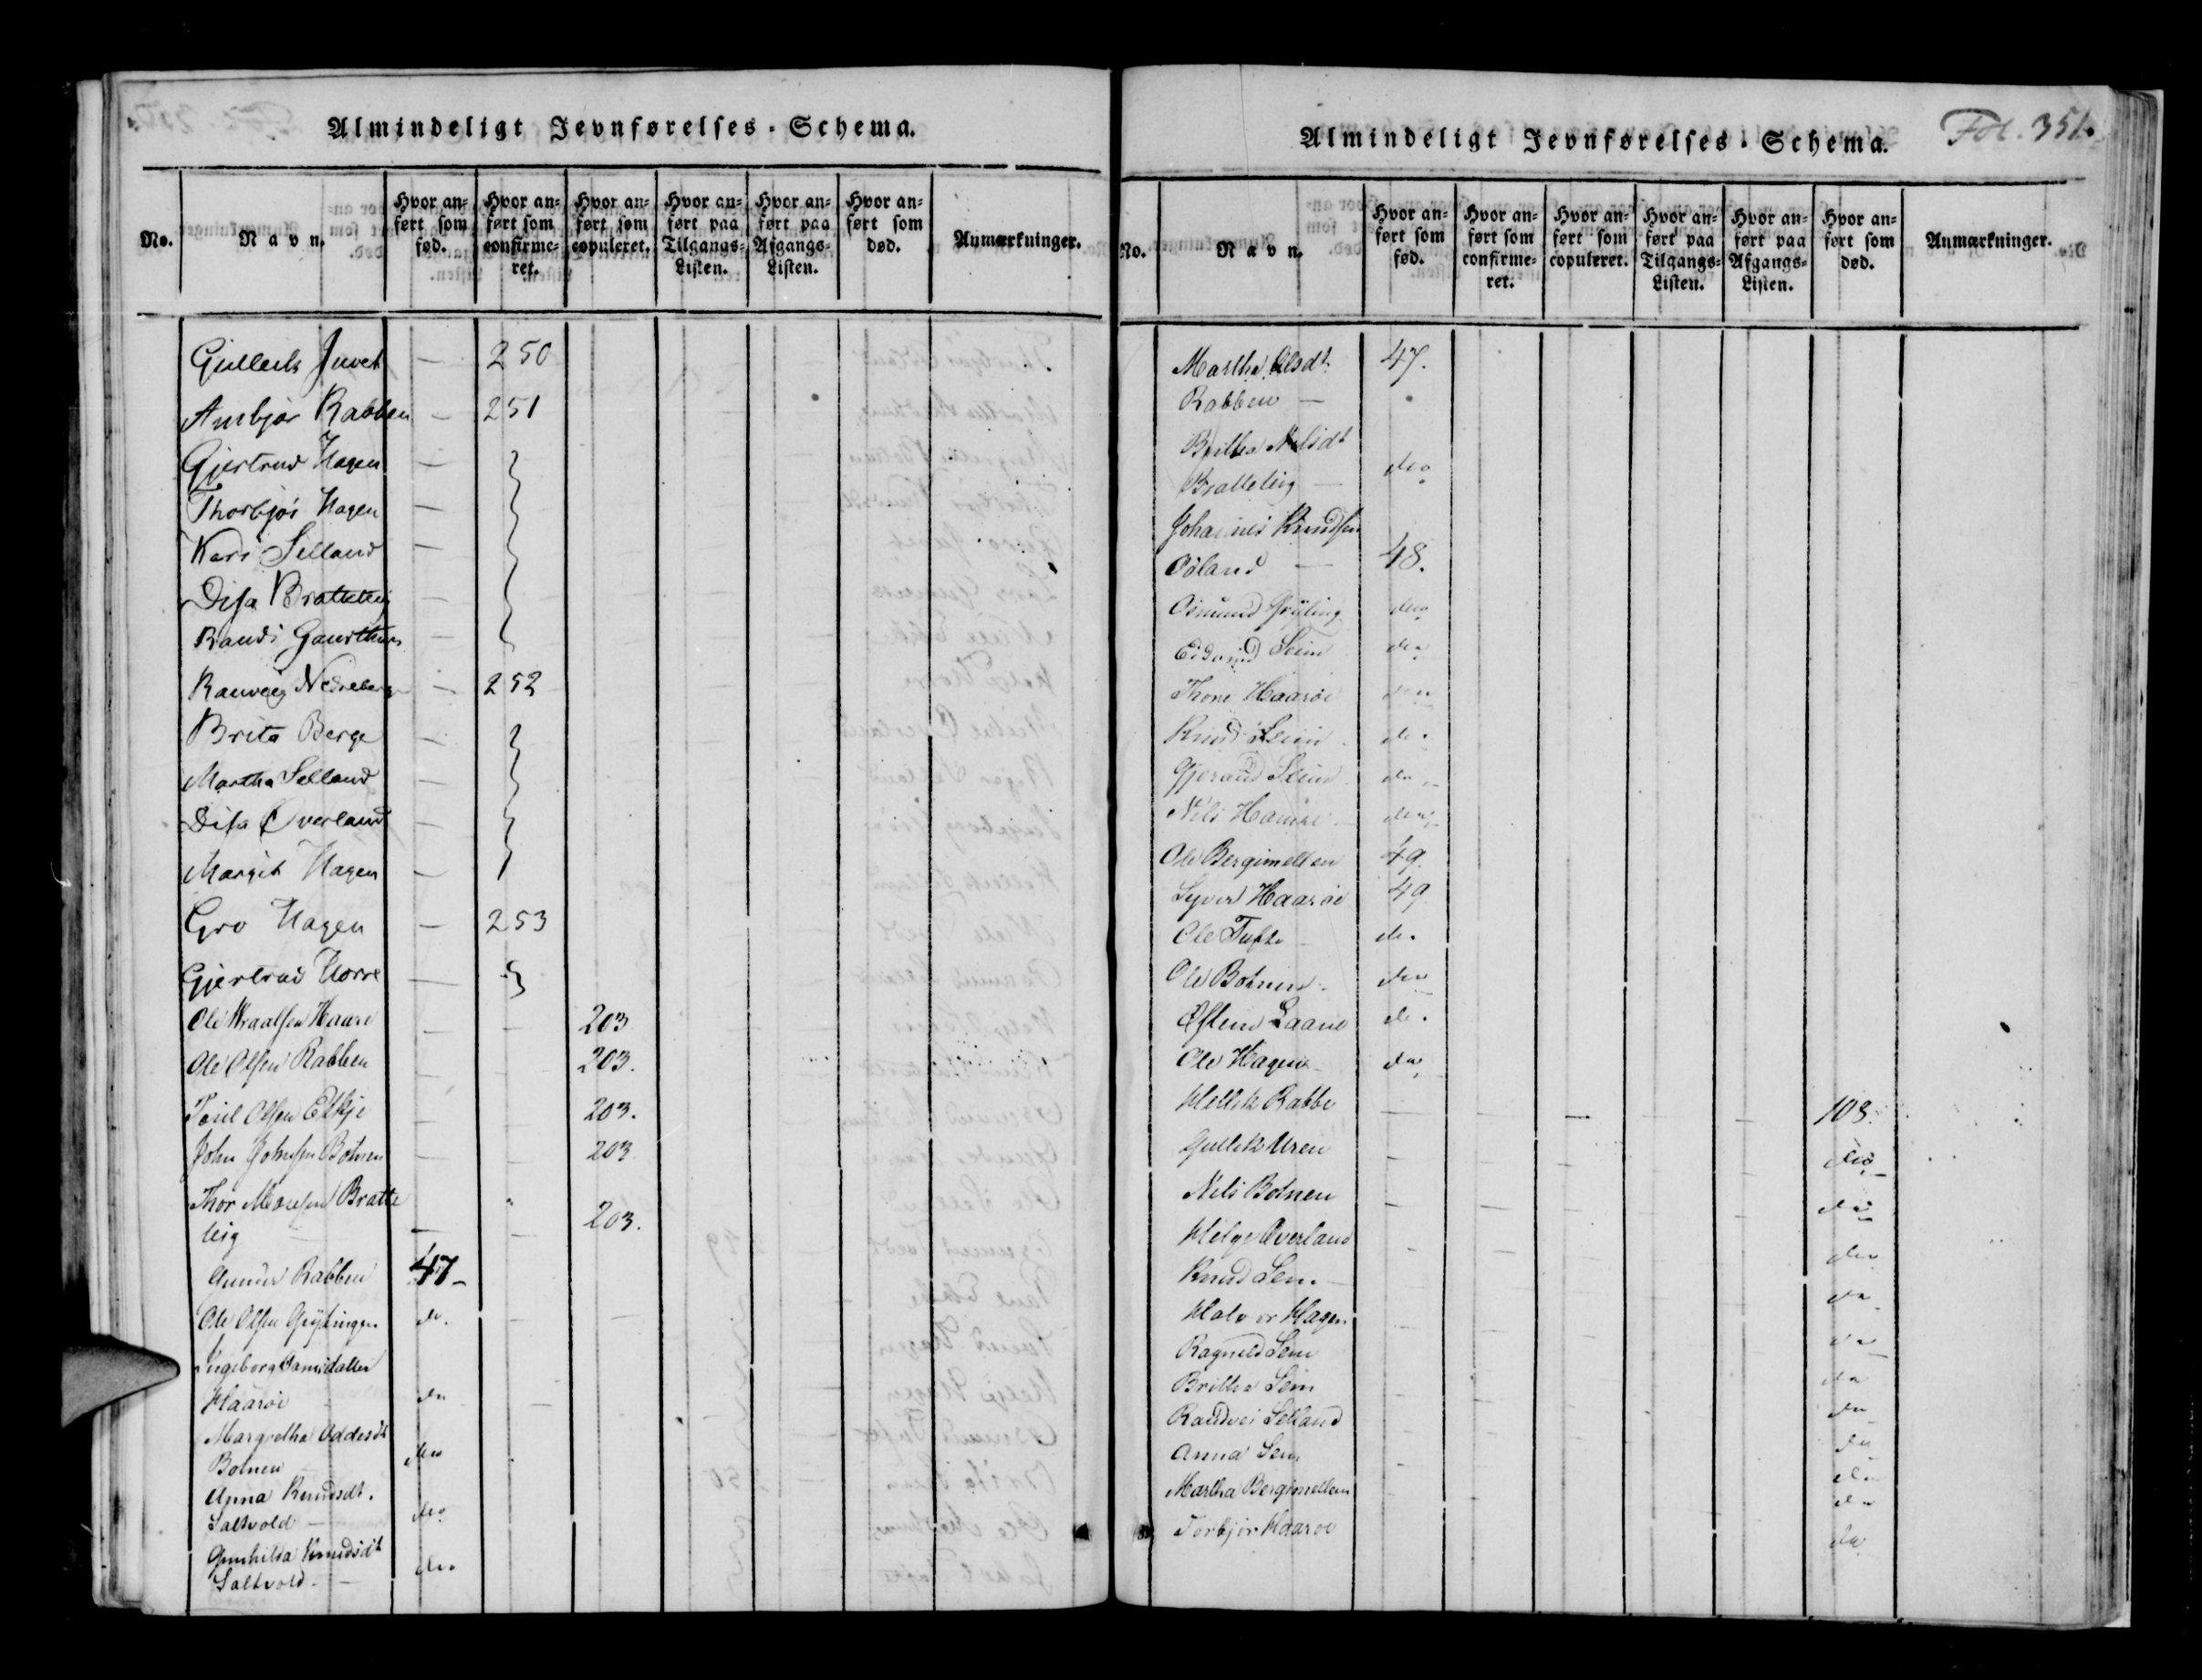 Almindeligt Jevnførelses-Schema.
No.
Navn.
Hvor anført som fød.
Hvor anført som confirmeret.
Hvor anført som copuleret.
Hvor anført paa Tilgangs-Listen.
Hvor anført paa Afgangs-Listen.
Hvor anført som død.
Anmærkninger.
Gulleik Juvet — 250
Anbjør Rabben — 251
Gjertrud Hagen —
Thorbjør Hagen —
Kari Selland —
Disa Bratteteig —
Randi —
Ranveig — 252
Brita Berge —
Martha Selland —
Disa Øverland —
Margit Hagen —
Gro Hagen — 253
Gjertrud Horre —
Ole Wraalsen Haare — — 203
Ole Olsen Rabben — — 203.
Olsen Eskje — — 203.
John Johnsen Botnen — — 203
Thor Monssen Bratte
leig — — 203.
Gunner Rabben 47 —
Ole Olsen Grytingen do.
Ingeborg Aamsdatter
Haarøe do
Margretha Oddesdt
Botnen do
Anna Knudsdt.
Saltvold — do
Gunhilda Knudsdt
Saltvold — do
Almindeligt Jevnførelses-Schema.
Fol. 351.
No.
Navn.
Hvor anført som fød.
Hvor anført som confirmeret.
Hvor anført som copuleret.
Hvor anført paa Tilgangs-Listen.
Hvor anført paa Afgangs-Listen.
Hvor anført som død.
Anmærkninger.
Martha Olsdt. 47.
Rabben —
Britha Nilsdt
Bratteteig — do
Johannes Knudsen
Øvland — 48.
Osmund Gryting do
Seim do
Thone Haarøe do
Knud Seim do.
Gjeraud Seim do
Nils Hamre — do
Ole Bergimellem 49.
Syver Haarøe 49
Ole Tufte — do.
Ole Botnen — do
Østen Laane do.
Ole Hagen — do
Hellek Rabbe — 108.
Gullek Uren do
Nils Botnen do
Helge Øverland do
Knud Sem — do
Halvor Hagen do
Ragnild Sem do
Britha Sem do
Randvei Selland do
Anna Sem do
Martha Bergimellem do
Torbjør Haarøe do